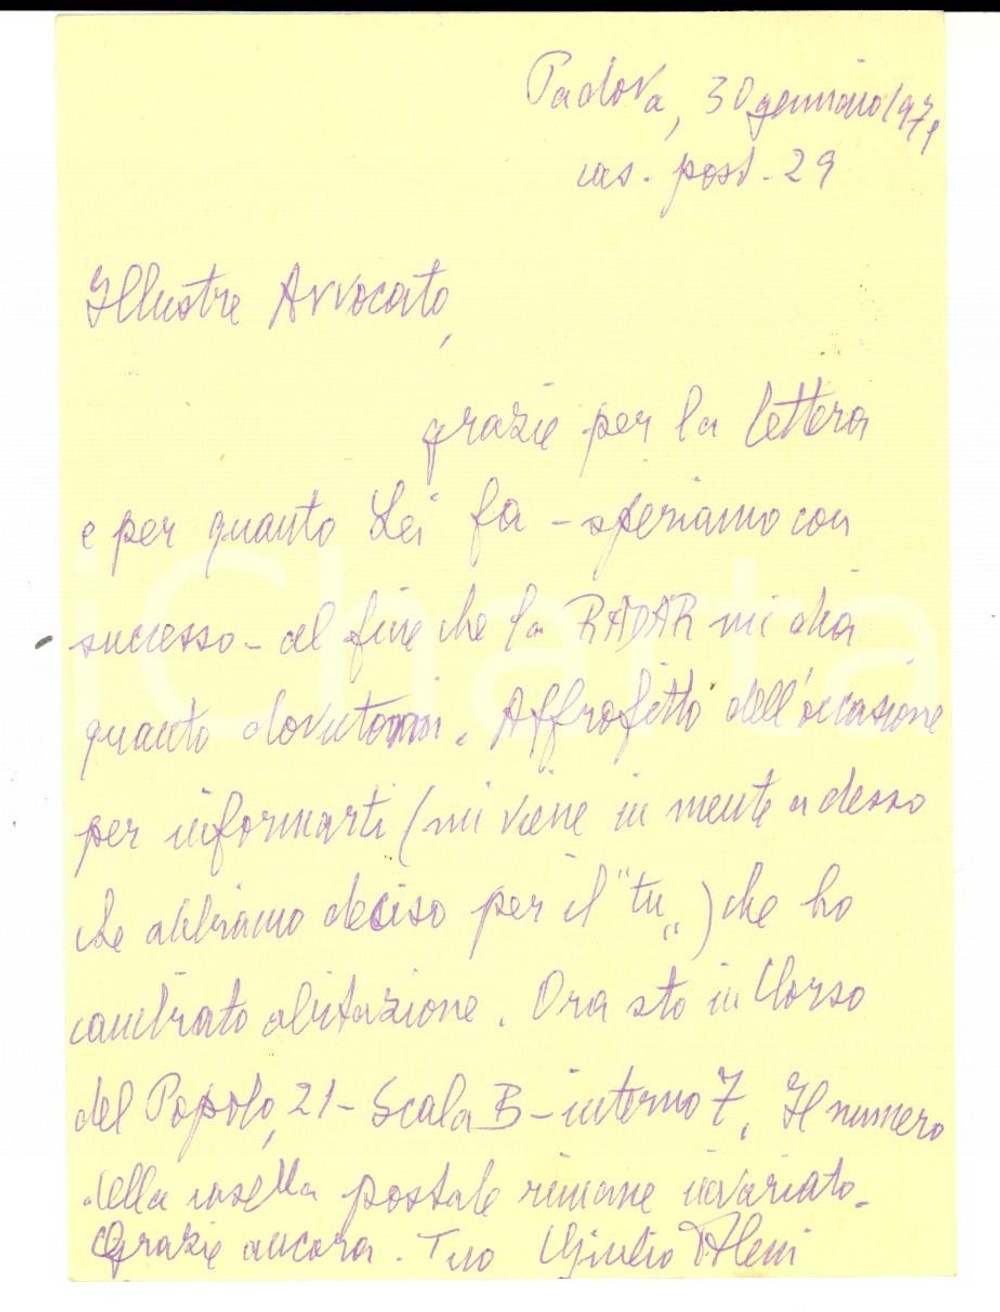 Padova, 30 gennaio 1971
cas. post. 29
Illustre Avvocato,
grazie per la lettera
e per quanto Lei fa - speriamo con
successo - al fine che la RADAR mi dia
quanto dovutomi. Approfitto dell'occasione
per informarti (mi viene in mente adesso
che abbiamo deciso per il "tu") che ho
cambiato abitazione. Ora sto in Corso
del Popolo, 21 - Scala B - interno 7. Il numero
della casella postale rimane invariato.
Grazie ancora. Tuo Giulio
iCharta